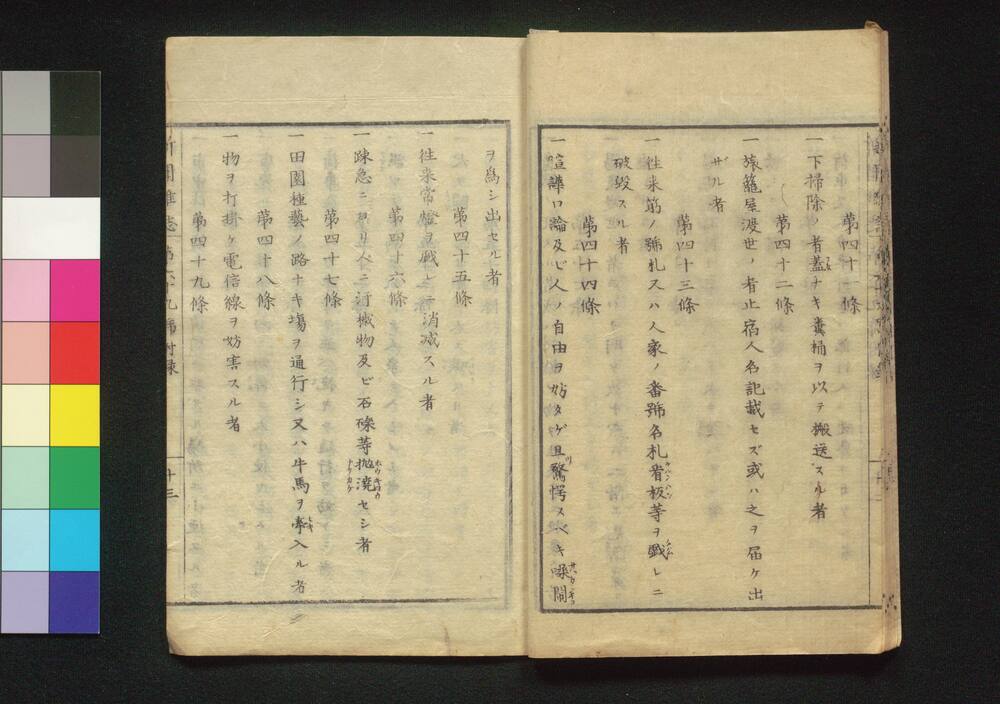 第四十一條
一下掃除ノ者蓋ナキ糞桶ヲ以テ搬送スル者
第四十二條
一旅籠屋渡世ノ者止宿人名記載セズ或ハ之ヲ届ケ出
ザル者
第四十三條
一往来筋ノ號札又ハ人家ノ番號名札看板等ヲ戯レニ
破毀スル者
第四十四條
一喧譁口論及ビ人ノ自由ヲ妨タゲ且驚愕スベキ噪閙
ヲ爲シ出セル者
第四十五條
一徃来常燈ヲ戯レニ消滅スル者
第四十六條
一疎忽ニヨリ人ニ汚穢物及ビ石礫等抛澆セシ者
第四十七條
一田園種藝ノ路ナキ塲ヲ通行シ又ハ牛馬ヲ牽入ル者
第四十八條
一物ヲ打掛ケ電信線ヲ妨害スル者
第四十九條
新聞雜志 第六十九號附録
十三